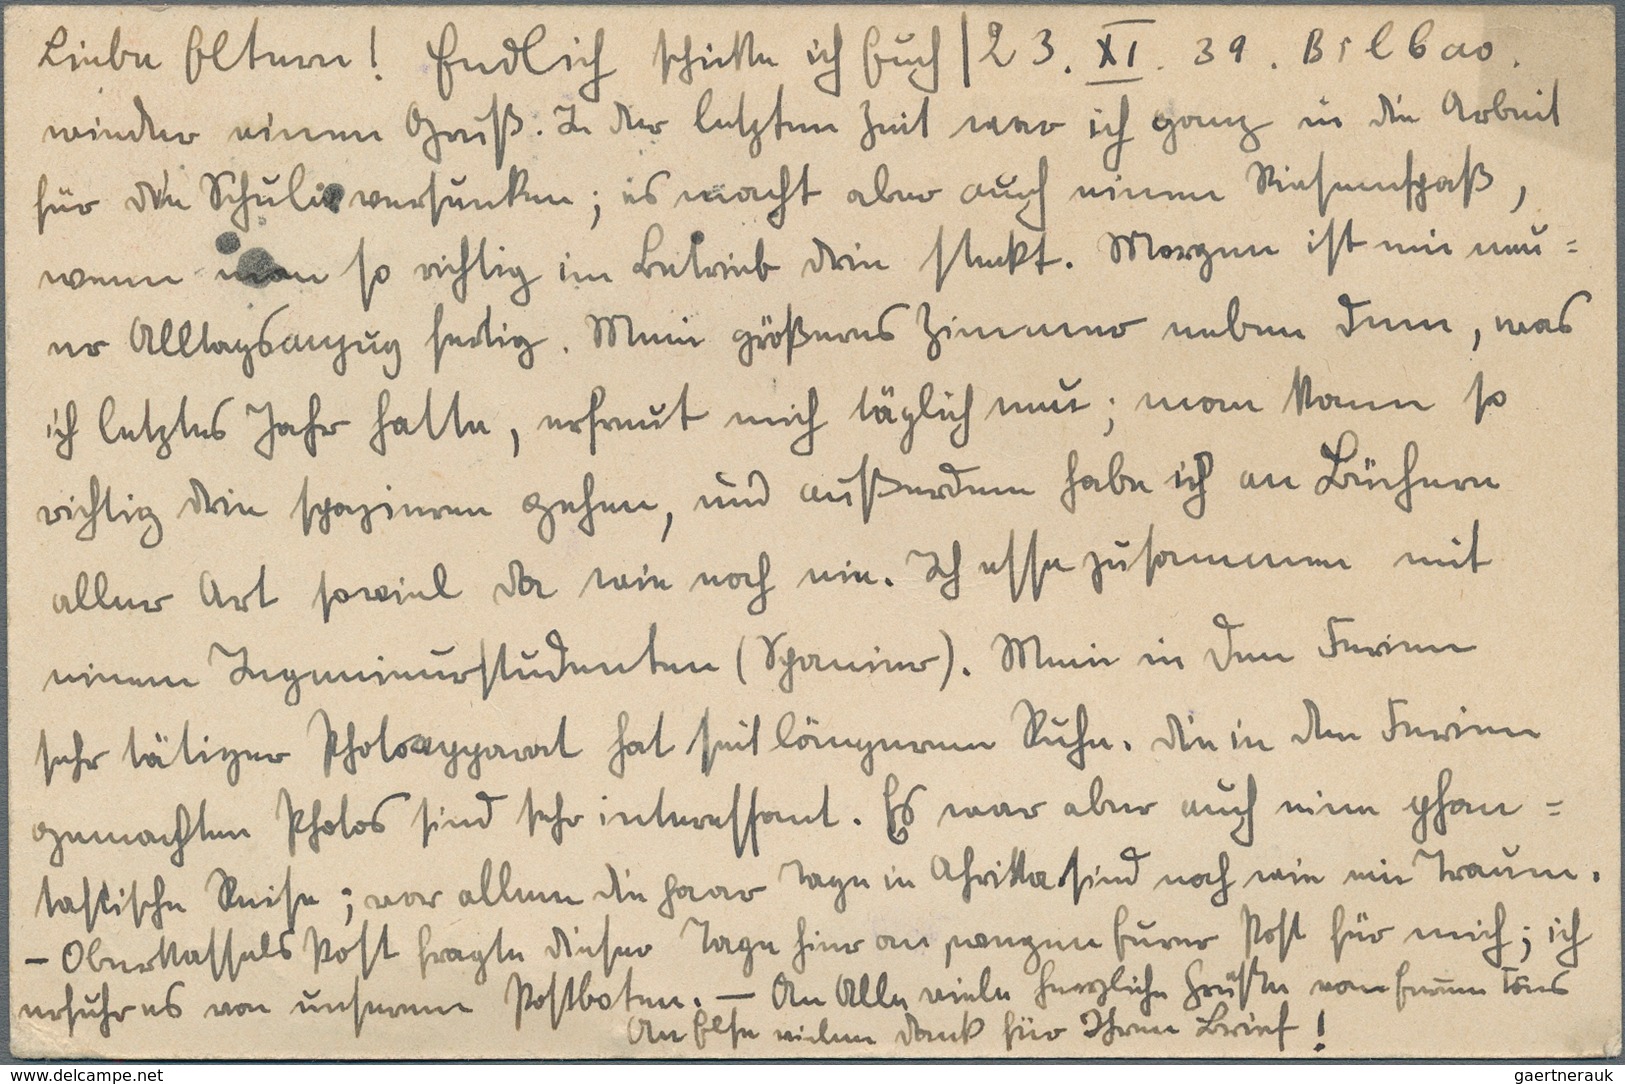 Liebe Eltern! Endlich schicke ich Euch | 23. XI. 39. Bilbao.
wieder einen Gruß. In der letzten Zeit war ich ganz in die Arbeit
für die Schule versunken; es macht aber auch einen Riesenspaß,
wenn man so richtig im Betrieb drin steckt. Morgen ist mein neu=
er Alltagsanzug fertig. Mein größeres Zimmer neben dem, was
ich letztes Jahr hatte, erfreut mich täglich neu; man kann so
richtig drin spazieren gehen, und außerdem habe ich an Büchern
aller Art soviel da wie noch nie. Ich esse zusammen mit
einem Ingenieurstudenten (Spanier). Mein in den Ferien
sehr tätiger Photoapparat hat seit längerem Ruhe. Die in den Ferien
gemachten Photos sind sehr interessant. Es war aber auch eine phan=
tastische Reise; vor allem die paar Tage in Afrika sind noch wie ein Traum.
— Oberkassels Post fragte dieser Tage hier an wegen Eurer Post für mich; ich
erfuhr es von unserem Postboten. — An Alle viele herzliche Grüße von Eurem Töns
An Else vielen Dank für Ihren Brief!
gaertnerauk
www.delcampe.net